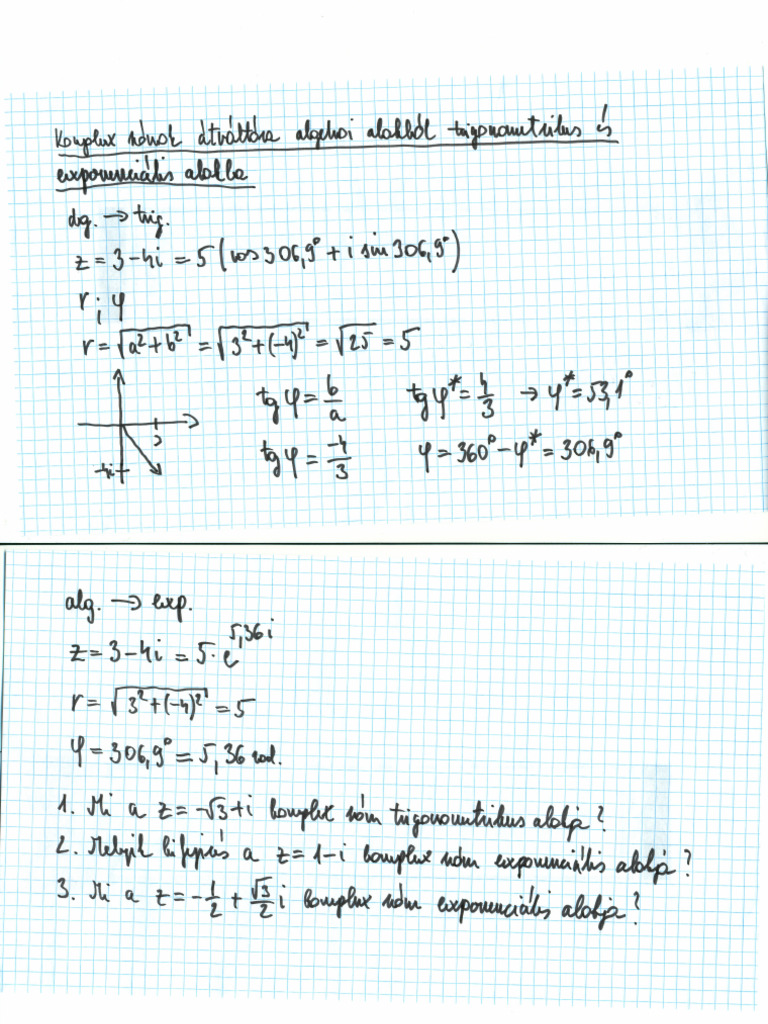 Komplex számok átváltása algebrai alakból trigonometrikus és
exponenciális alakba
alg. → trig.
z = 3 - 4i = 5 (cos 306,9° + i sin 306,9°)
r ; φ
r = √(a² + b²) = √(3² + (-4)²) = √25 = 5
tg φ = b/a tg φ* = 4/3 → φ* = 53,1°
3
-4i
tg φ = -4/3 φ = 360° - φ* = 306,9°
alg. → exp.
z = 3 - 4i = 5 · e^(5,36 i)
r = √(3² + (-4)²) = 5
φ = 306,9° = 5,36 rad.
1. Mi a z = -√3 + i komplex szám trigonometrikus alakja?
2. Melyik kifejezés a z = 1 - i komplex szám exponenciális alakja?
3. Mi a z = -1/2 + √3/2 i komplex szám exponenciális alakja?